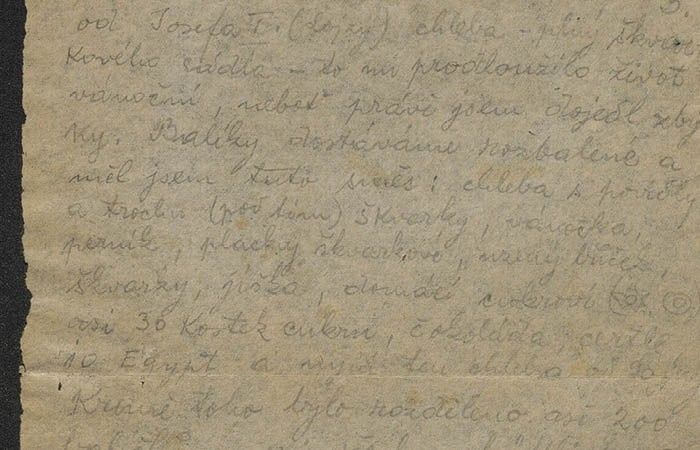 od Josefa F. (Lojzy) chleba - plný škvar
kového sádla - to mi prodloužilo život
vánoční, neboť právě jsem dojedl zby
ky. Balíky dostáváme rozbalené a
měl jsem tuto směs: chleba s
a trochu (pod tím) škvarky, vánočka,
perník, placky škvarkové, uzený bůček,
škvarky, jíška, domácí cukroví
asi 30 kostek cukru, čokoláda,
10 Egypt a nyní ten chleba od
Kromě toho bylo rozděleno asi 200